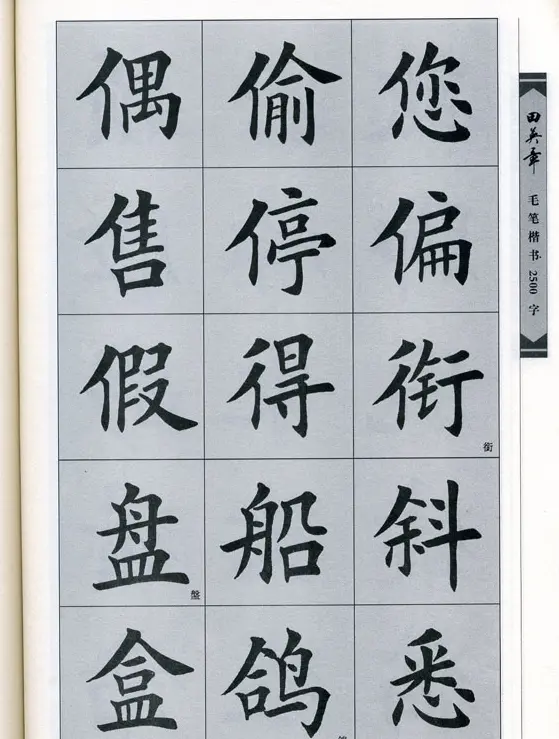 您偷偶
偏停售
衔得假
銜
斜船盘
盤
悉鸽盒
田英章 毛笔楷书2500字